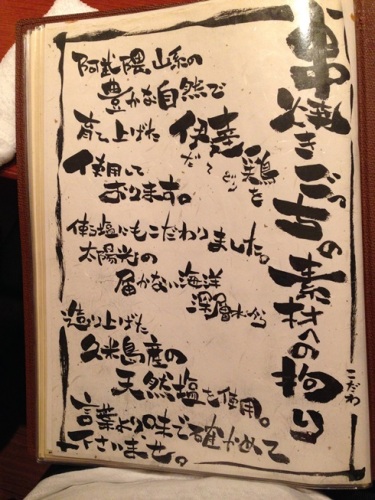 串焼きごっちの素材への拘り
こだわ
阿武隈山系の
豊かな自然で
育て上げた
伊達鶏を
だ〜どり
使用して
おります。
使う塩にもこだわりました。
太陽光の
届かない海洋
深層水から
造り上げた
久米島産の
天然塩を使用。
言葉より味で確かめて
下さいませ。